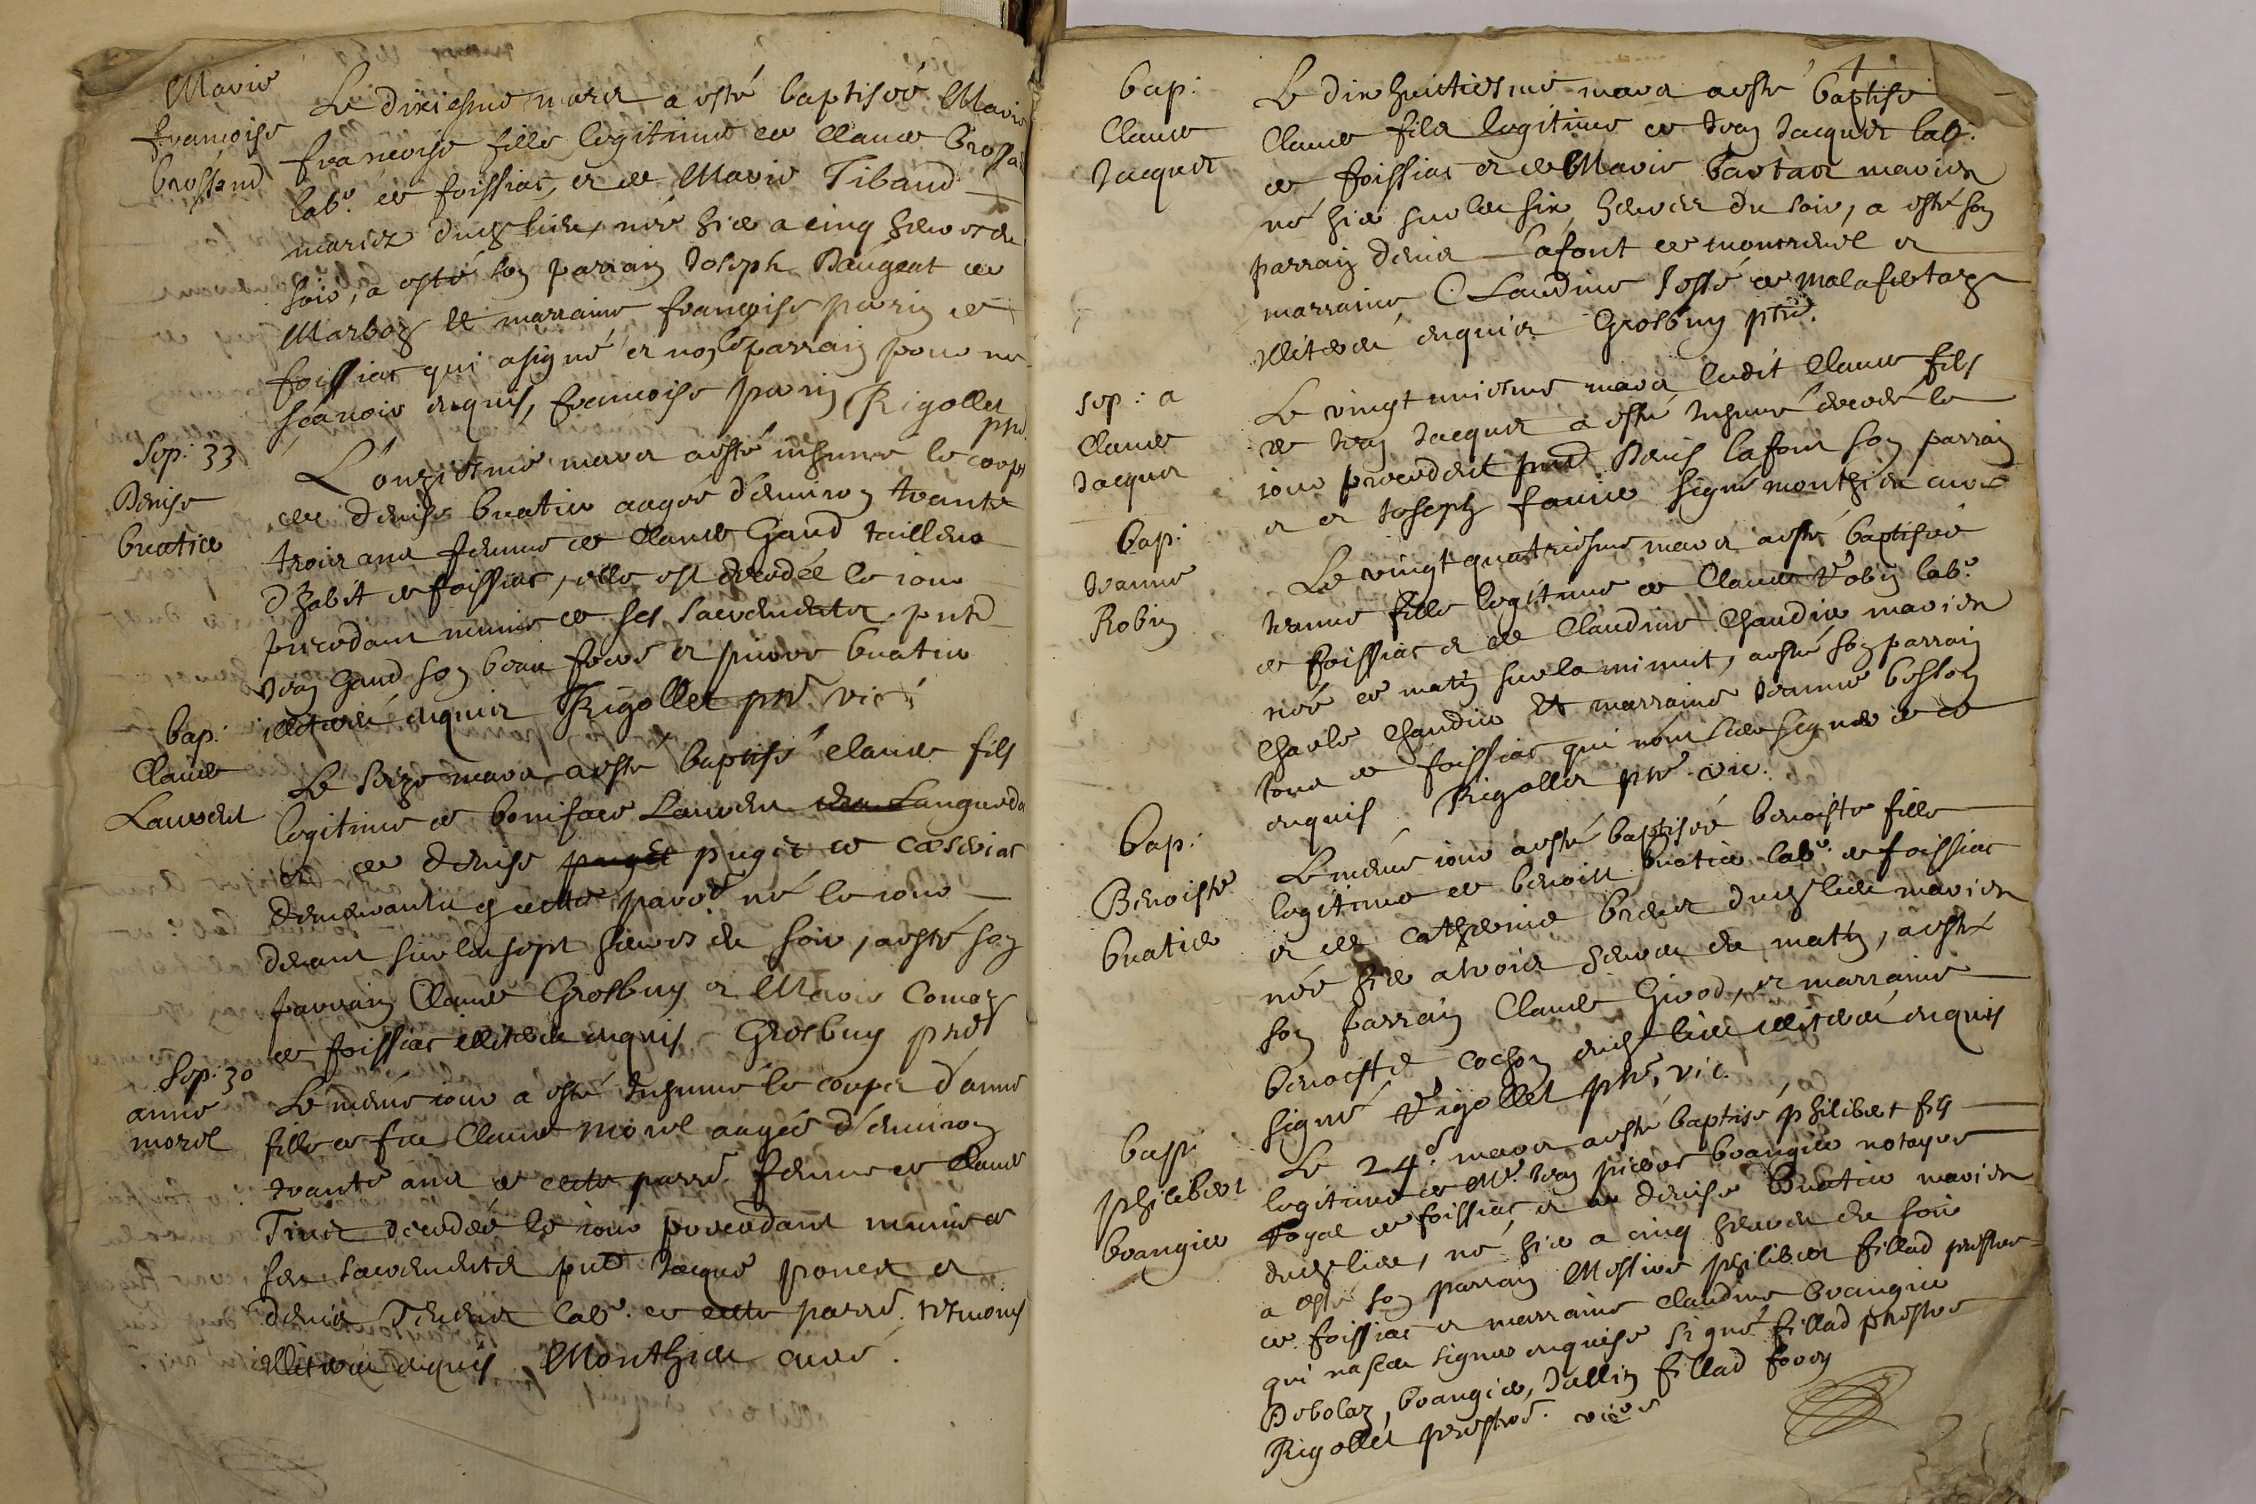 Marie
francoise
brossand
Le dixiesme mars a esté baptisée Marie
francoise fille legitime de Claude brossa
labr. de foissiac, et de Marie Tibaud
mariez dudt lieu, née hier a cinq heures du
soir, a esté son parrain Joseph Baugeat de
Marboz et marraine francoise parin de
foissiac qui a signé et non le parrain pour ne
scavoir enquis, francoise parin Rigollet
ptre.
Sep: 33
Denise
buatier
L'onziesme mars a esté inhumé le corps
de denise buatier aagée d'environ trante
trois ans femme de Claude Gaud tailleur
d'habit de foissiac, elle est decedée le jour
precedant munie de ses sacrements. pntd
Jean Gaud son beau frere et pierre buatier
illiteré enquis Rigollet ptre vic:
bap:
Claude
Laurent
Le seize mars a esté baptisé claude fils
legitime de boniface Laurent du Languedo
et de denise puget puget de Cuisiat
demeurant en cette parre né le jour
devant sur les sept heures du soir, a esté son
parrain Claude Grosbuy et Marie Comaz
de foissiac illiteré enquis Grosbuy ptre
Sep: 30
anne
morel
Le même jour a esté inhumé le corps d'anne
fille de feu Claude Morel aagée d'environ
trante ans de cette parre. femme de Claude
Tinet decedée le jour precedant munie de
ses sacrements pntd Jacque ponet et
denis Tenene labr. de cette parre. tesmoins
illiteré enquis Monthieu curé.
bap:
Claude
Jacquet
Le dix huictiesme mars a esté baptisé
Claude fils legitime de Jean Jacquet labr.
de foissiac et de Marie bavtaor mariez
né hier sur les six heures du soir, a esté son
parrain denis Lafont de montreuil et
marraine Claudine Josse de malafretaz
illiteré enquis Grosbuy ptre.
sep: a
Claude
Jacquet
Le vingt uniesme mars ledit Claude fils
de Jean Jacquet a esté inhumé decedé le
jour precedent pntd Denis lafont son parrain
et et Joseph favier signé monthieu curé
bap:
Jeanne
Robin
Le vingt quatriesme mars a esté baptisée
Jeanne fille legitime de Claude Robin labr.
de foissiac et de Claudine Chaudier mariez
née ce matin sur la minuit, a esté son parrain
Charle Chaudier et marraine Jeanne besson
tous de foissiac qui n'ont sceu signer de ce
enquis Rigollet ptre vic.
bap:
Benoiste
buatier
Le même jour a esté baptisée benoiste fille
legitime de benoist buatier labr. de foissiac
et de catherine brenet dudt lieu mariez
née hier a trois heures du matin, a esté
son parrain Claude Girod, et marraine
benoiste cochon dudt lieu illiteré enquis
signé Rigollet ptre, vic.
bap:
philibert
brangier
Le 24e. mars a esté baptisé philibert fils
legitime de Me. Jean pierre brangier notayre
royal de foissiac et de denise buatier mariez
dudt lieu, né hier a cinq heures du soir
a esté son parrain Messire philibert fillad prestre
de foissiac et marraine claudine brangier
qui n'a sceu signer enquise signé fillad prestre
Debolaz, brangier, Jallin fillad forey
Rigollet prestre. vicre